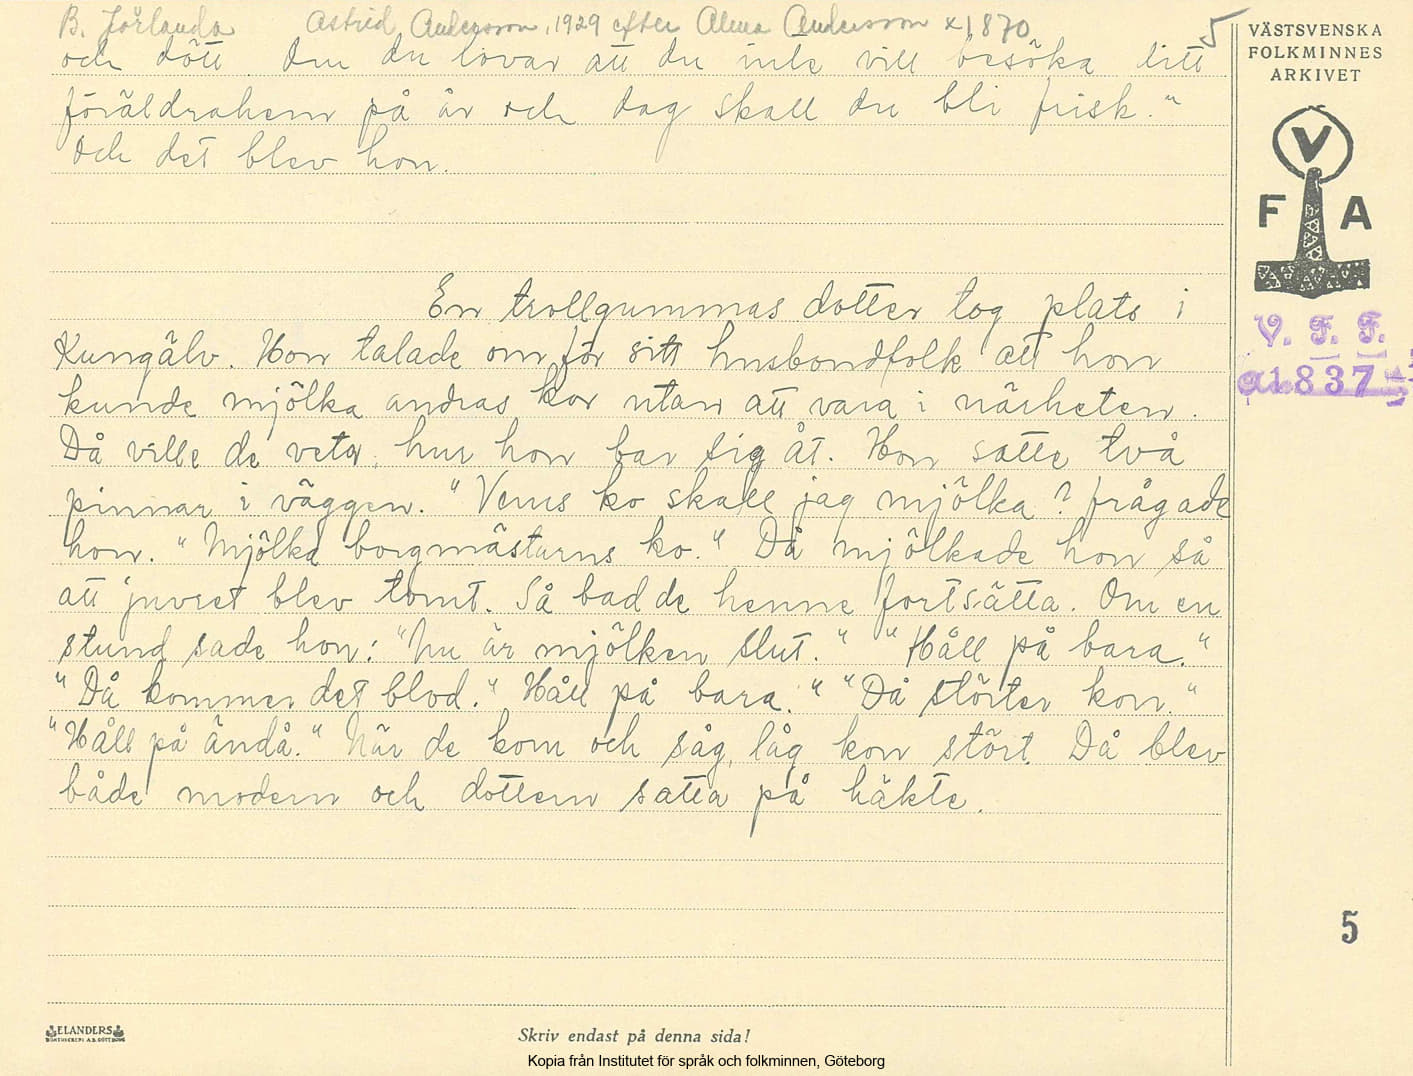 B. Jörlanda Astrid Andersson, 1929 efter Alma Andersson *1870 5
och dött. Om du lovar att du inte vill besöka ditt
föräldrahem på år och dag skall du bli frisk."
Och det blev hon.
En trollgummas dotter tog plats i
Kungälv. Hon talade om för sitt husbondfolk att hon
kunde mjölka andras kor utan att vara i närheten.
Då ville de veta, hur hon bar sig åt. Hon satte två
pinnar i väggen. "Vems ko skall jag mjölka? frågade
hon. "Mjölka borgmästarns ko." Då mjölkade hon så
att juvret blev tomt. Så bad de henne fortsätta. Om en
stund sade hon: "Nu är mjölken slut." "Håll på bara."
"Då kommer det blod." Håll på bara." "Då störter kon."
"Håll på ändå." När de kom och såg, låg kon stört. Då blev
både modern och dottern satta på häkte.
VÄSTSVENSKA
FOLKMINNES
ARKIVET
V
F A
V. F. F.
1837
5
ELANDERS
Skriv endast på denna sida!
Kopia från Institutet för språk och folkminnen, Göteborg